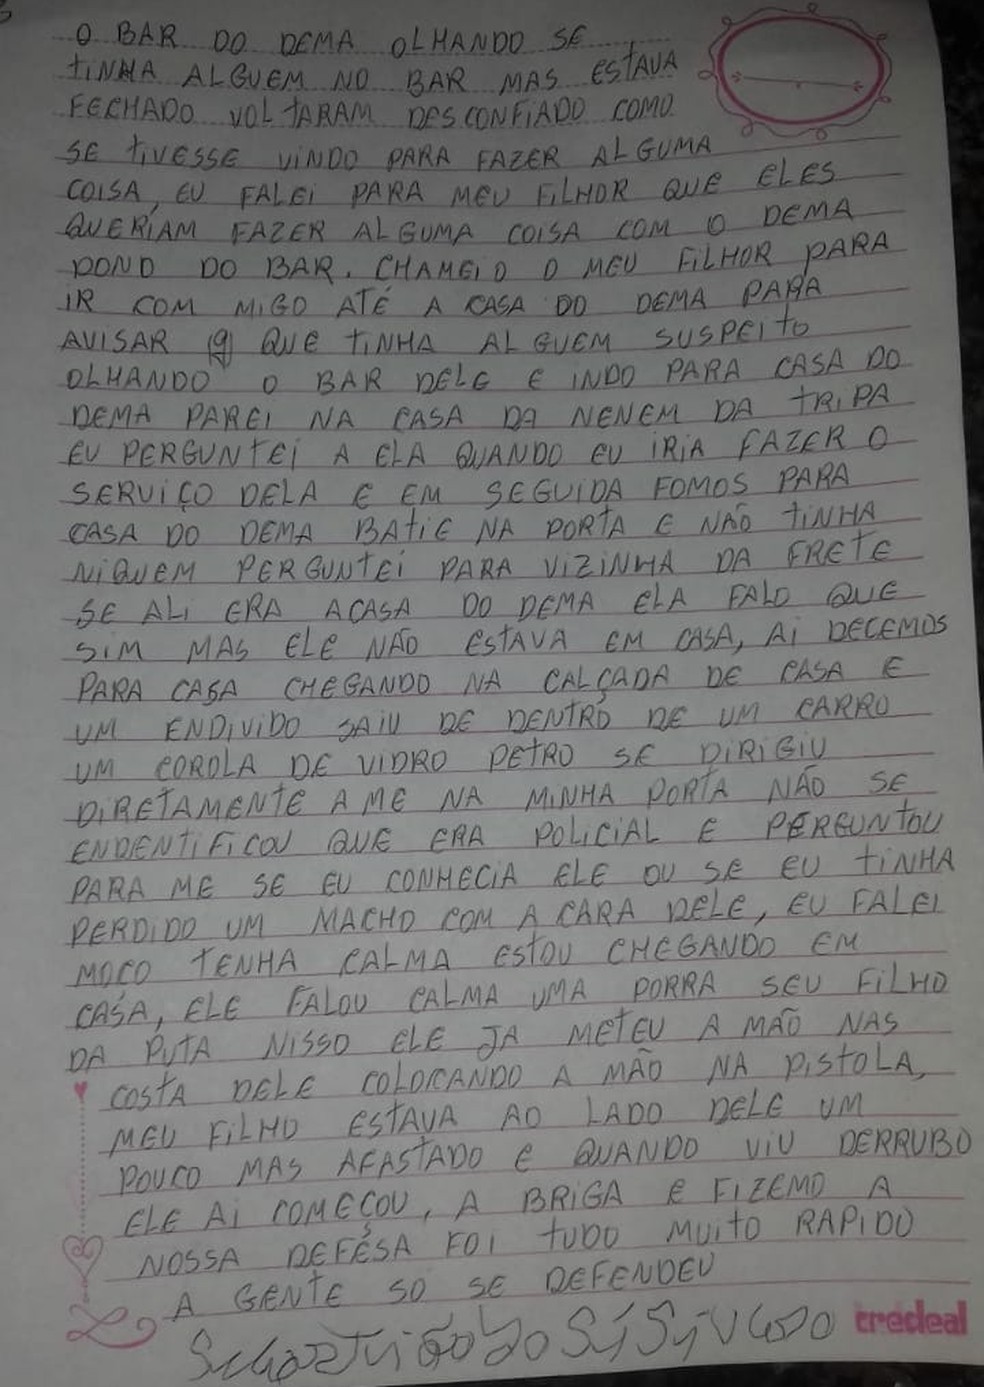 O BAR DO DEMA OLHANDO SE
TINHA ALGUEM NO BAR MAS ESTAVA
FECHADO VOLTARAM DESCONFIADO COMO
SE TIVESSE VINDO PARA FAZER ALGUMA
COISA, EU FALEI PARA MEU FILHOR QUE ELES
QUERIAM FAZER ALGUMA COISA COM O DEMA
DONO DO BAR. CHAMEI O O MEU FILHOR PARA
IR COM MIGO ATÉ A CASA DO DEMA PARA
AVISAR QUE TINHA ALGUEM SUSPEITO
OLHANDO O BAR DELE E INDO PARA CASA DO
DEMA PAREI NA CASA DA NENEM DA TRIPA
EU PERGUNTEI A ELA QUANDO EU IRIA FAZER O
SERVIÇO DELA E EM SEGUIDA FOMOS PARA
CASA DO DEMA BATIE NA PORTA E NÃO TINHA
NIQUEM PERGUNTEI PARA VIZINHA DA FRETE
SE ALI ERA ACASA DO DEMA ELA FALO QUE
SIM MAS ELE NÃO ESTAVA EM CASA, AI DECEMOS
PARA CASA CHEGANDO NA CALÇADA DE CASA E
UM ENDIVIDO SAIU DE DENTRO DE UM CARRO
UM COROLA DE VIDRO PETRO SE DIRIGIU
DIRETAMENTE A ME NA MINHA PORTA NÃO SE
ENDENTIFICOU QUE ERA POLICIAL E PERGUNTOU
PARA ME SE EU CONHECIA ELE OU SE EU TINHA
PERDIDO UM MACHO COM A CARA DELE, EU FALEI
MOCO TENHA CALMA ESTOU CHEGANDO EM
CASA, ELE FALOU CALMA UMA PORRA SEU FILHO
DA PUTA NISSO ELE JA METEU A MÃO NAS
COSTA DELE COLOCANDO A MÃO NA PISTOLA,
MEU FILHO ESTAVA AO LADO DELE UM
POUCO MAS AFASTADO E QUANDO VIU DERRUBO
ELE AI COMEÇOU, A BRIGA E FIZEMO A
NOSSA DEFÉSA FOI TUDO MUITO RAPIDO
A GENTE SO SE DEFENDEU
credeal